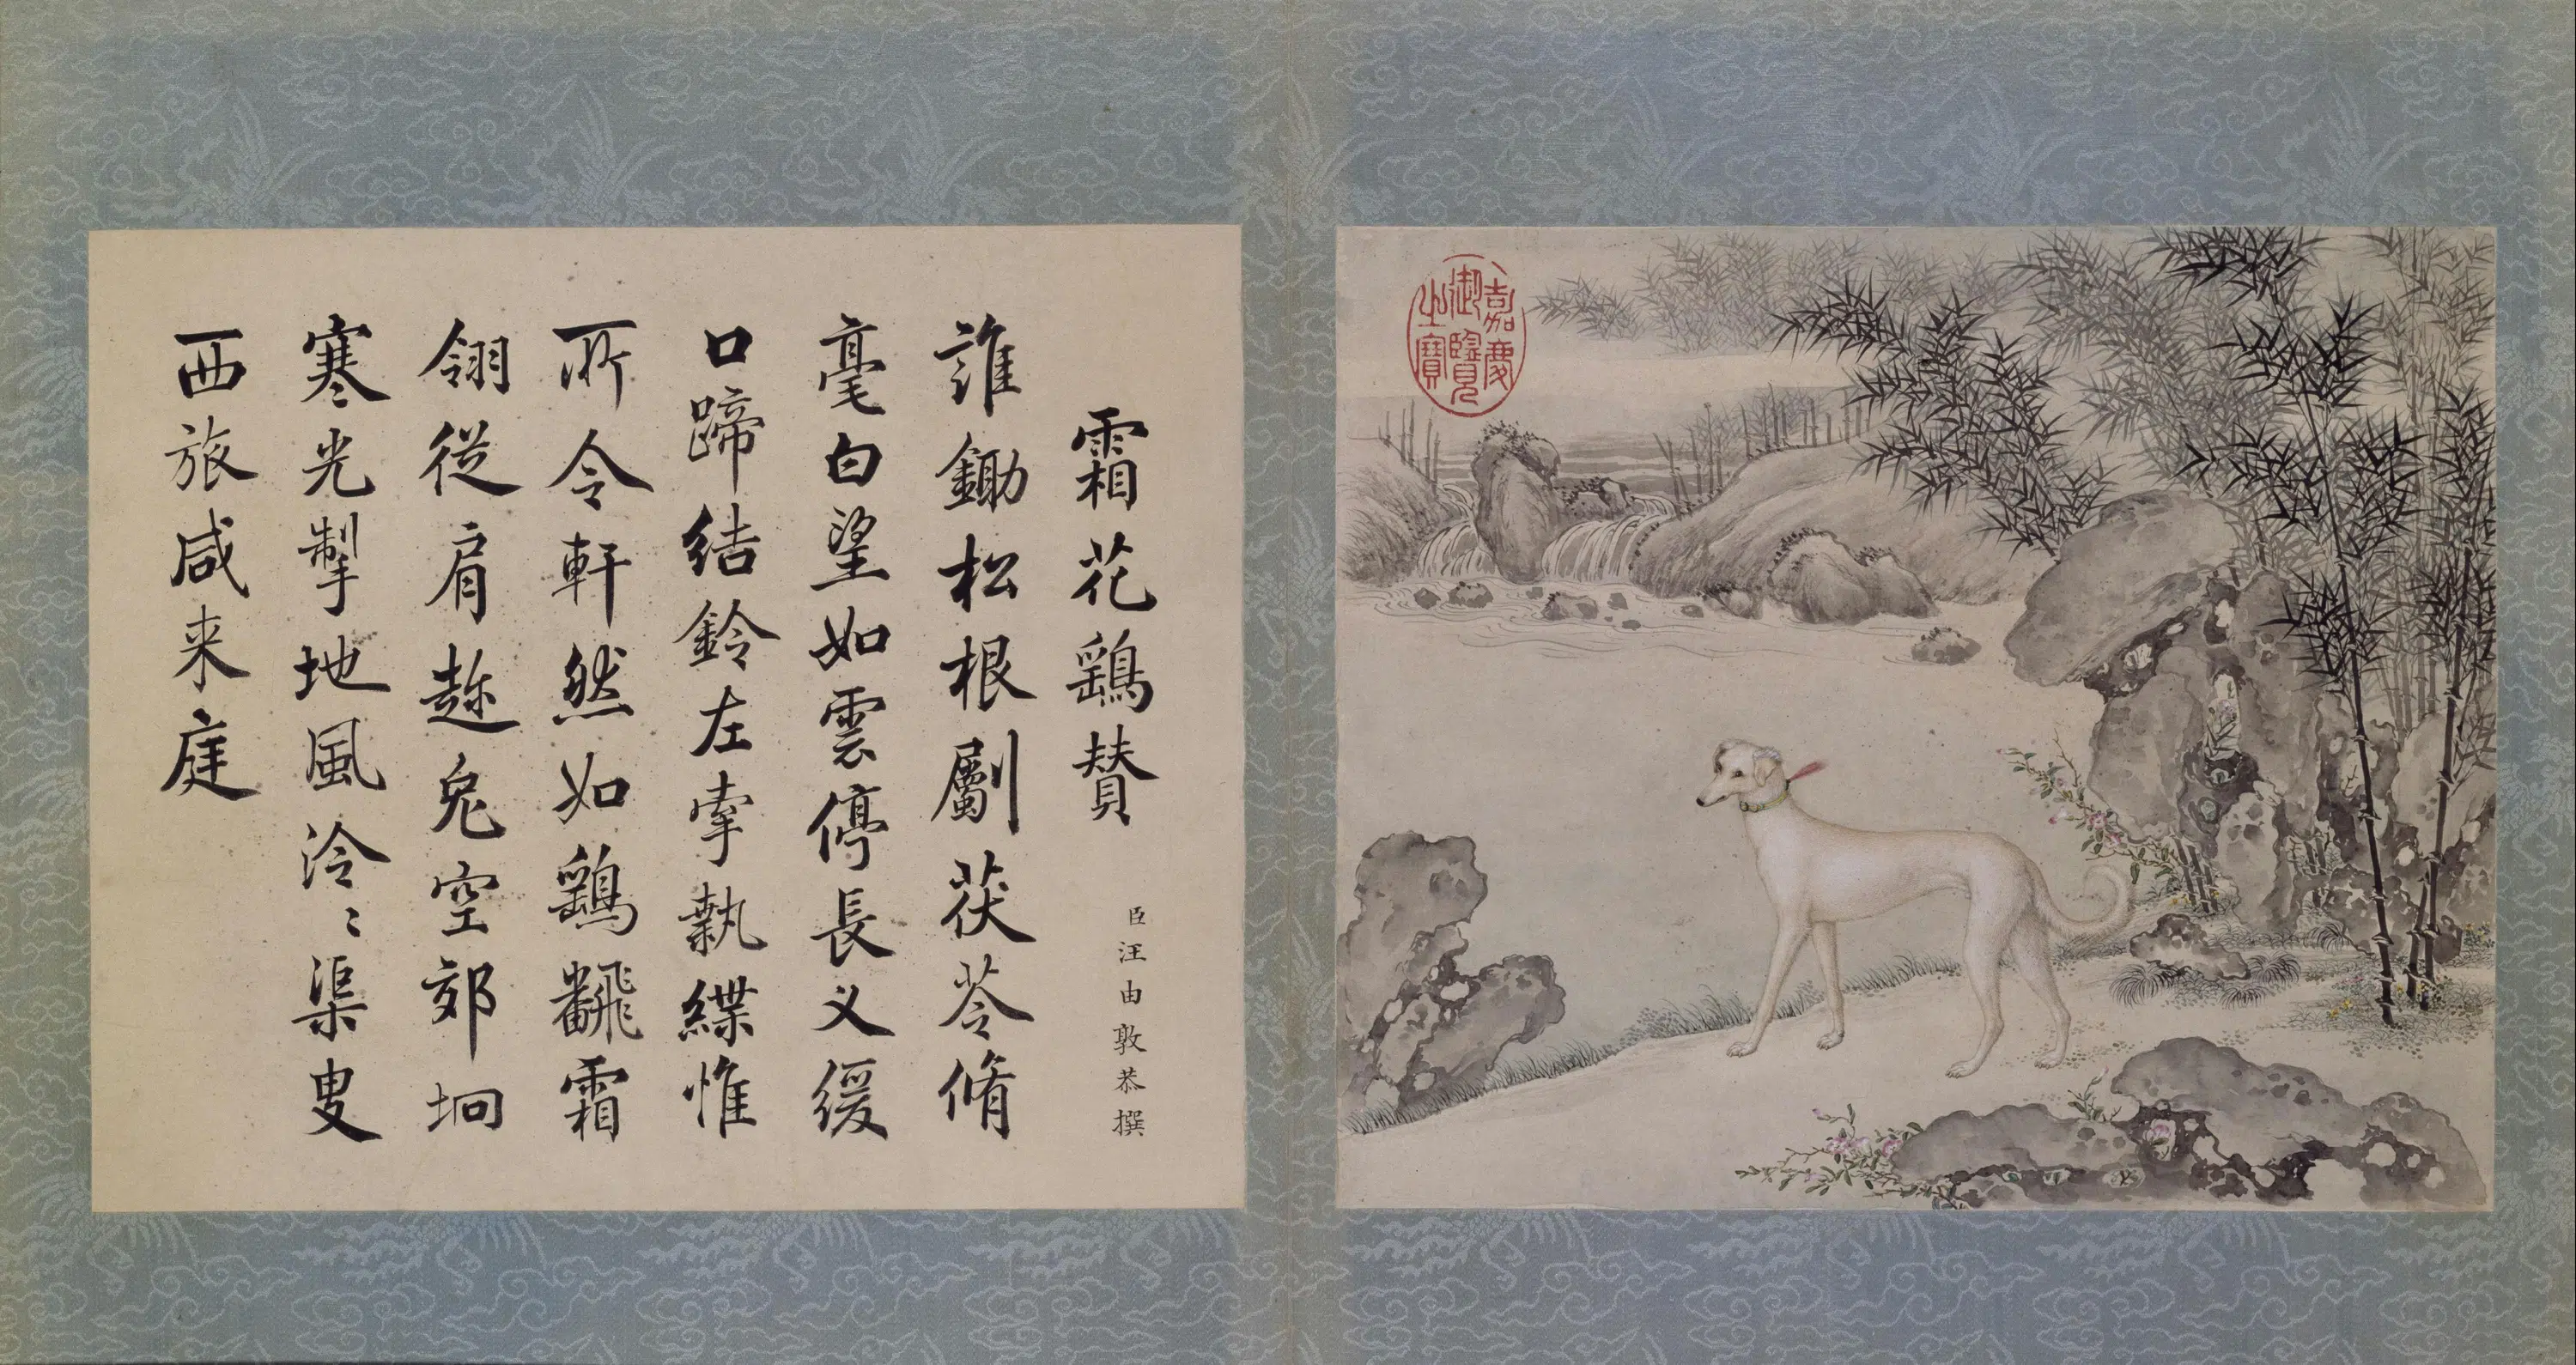 嘉慶
御覽
之寶
霜花鷂賛
臣汪由敦恭撰
誰鋤松根劚茯苓脩
毫白望如雲停長义緩
口蹄結鈴左牽執緤惟
所令軒然如鷂飜霜
翎從肩趂兔空郊坰
寒光掣地風泠〻渠叟
西旅咸来庭